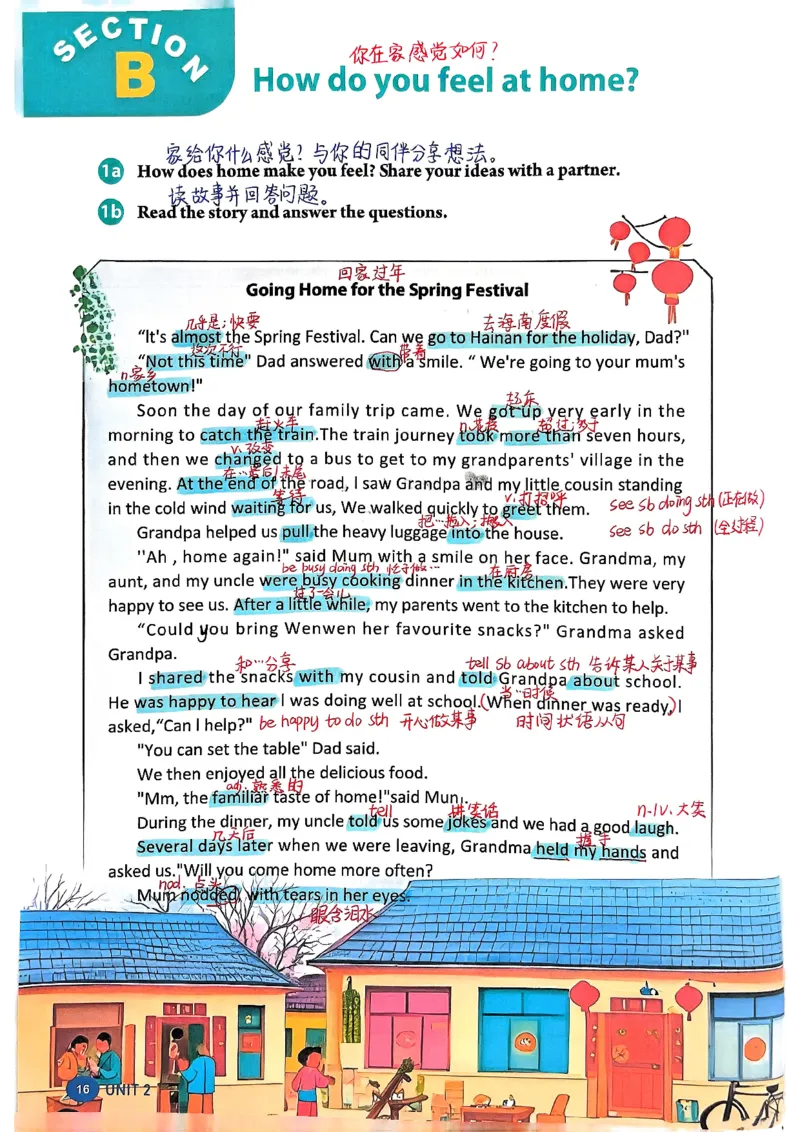 SECTION
B
你在家感觉如何?
How do you feel at home?
家给你什么感觉?与你的同伴分享想法。
1a How does home make you feel? Share your ideas with a partner.
读故事并回答问题。
1b Read the story and answer the questions.
回家过年
Going Home for the Spring Festival
几乎是;快要 去海南度假
"It's almost the Spring Festival. Can we go to Hainan for the holiday, Dad?"
这次不行 带着
"Not this time" Dad answered with a smile. " We're going to your mum's
n家乡
hometown!"
起床
Soon the day of our family trip came. We got up very early in the
赶火车 n.花费 超过;多于
morning to catch the train.The train journey took more than seven hours,
v.改变
and then we changed to a bus to get to my grandparents' village in the
在…最后/末尾
evening. At the end of the road, I saw Grandpa and my little cousin standing
等待 v.打招呼 see sb doing sth (正在做)
in the cold wind waiting for us, We walked quickly to greet them.
把…拖入;搬入 see sb do sth (全过程)
Grandpa helped us pull the heavy luggage into the house.
''Ah , home again!" said Mum with a smile on her face. Grandma, my
be busy doing sth 忙于做… 在厨房
aunt, and my uncle were busy cooking dinner in the kitchen.They were very
过了一会儿
happy to see us. After a little while, my parents went to the kitchen to help.
"Could you bring Wenwen her favourite snacks?" Grandma asked
Grandpa.
和…分享 tell sb about sth 告诉某人关于某事
I shared the snacks with my cousin and told Grandpa about school.
当…时候
He was happy to hear I was doing well at school.(When dinner was ready,)I
asked,"Can I help?" be happy to do sth 开心做某事 时间状语从句
"You can set the table" Dad said.
We then enjoyed all the delicious food.
adj.熟悉的
"Mm, the familiar taste of home!"said Mun .
tell 讲笑话 n-/v.大笑
During the dinner, my uncle told us some jokes and we had a good laugh.
几天后 握手
Several days later when we were leaving, Grandma held my hands and
asked us."Will you come home more often?
nod.点头
Mum nodded, with tears in her eyes.
眼含泪水
16 UNIT 2